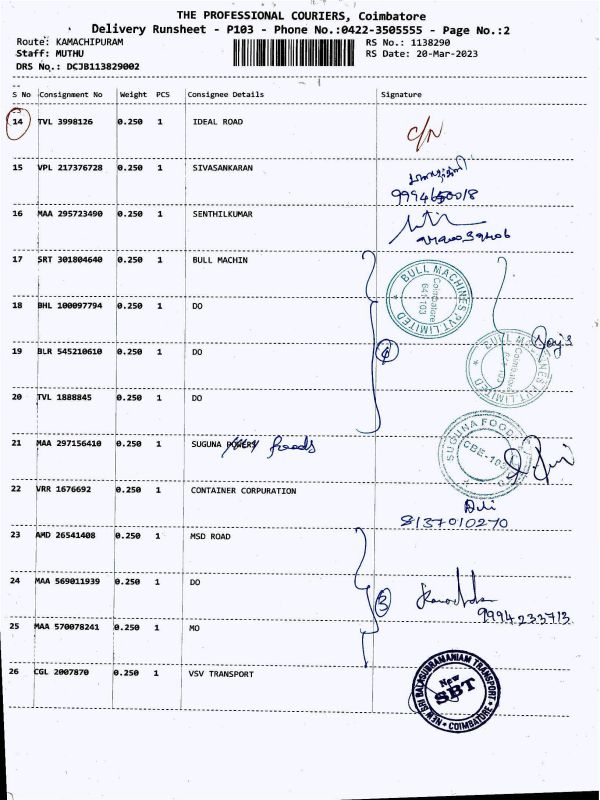 THE PROFESSIONAL COURIERS, Coimbatore
Delivery Runsheet - P103 - Phone No.:0422-3505555 - Page No.:2
Route: KAMACHIPURAM RS No.: 1138290
Staff: MUTHU RS Date: 20-Mar-2023
DRS No.: DCJB113829002
S No Consignment No Weight PCS Consignee Details Signature
14 TVL 3998126 0.250 1 IDEAL ROAD C/N
15 VPL 217376728 0.250 1 SIVASANKARAN
9994650018
16 MAA 295723490 0.250 1 SENTHILKUMAR
17 SRT 301804640 0.250 1 BULL MACHIN
BULL MACHINES PVT LIMITED
Coimbatore
641 103
18 BHL 100097794 0.250 1 DO
19 BLR 545210610 0.250 1 DO
20 TVL 1888845 0.250 1 DO
21 MAA 297156410 0.250 1 SUGUNA foods
SUGUNA FOODS
CBE-103
22 VRR 1676692 0.250 1 CONTAINER CORPURATION
8137010270
23 AMD 26541408 0.250 1 MSD ROAD
24 MAA 569011939 0.250 1 DO
3
9994233713
25 MAA 570078241 0.250 1 MO
26 CGL 2007870 0.250 1 VSV TRANSPORT
NEW SRI BALASUBRAMANIAM TRANSPORT
New
SBT
COIMBATORE